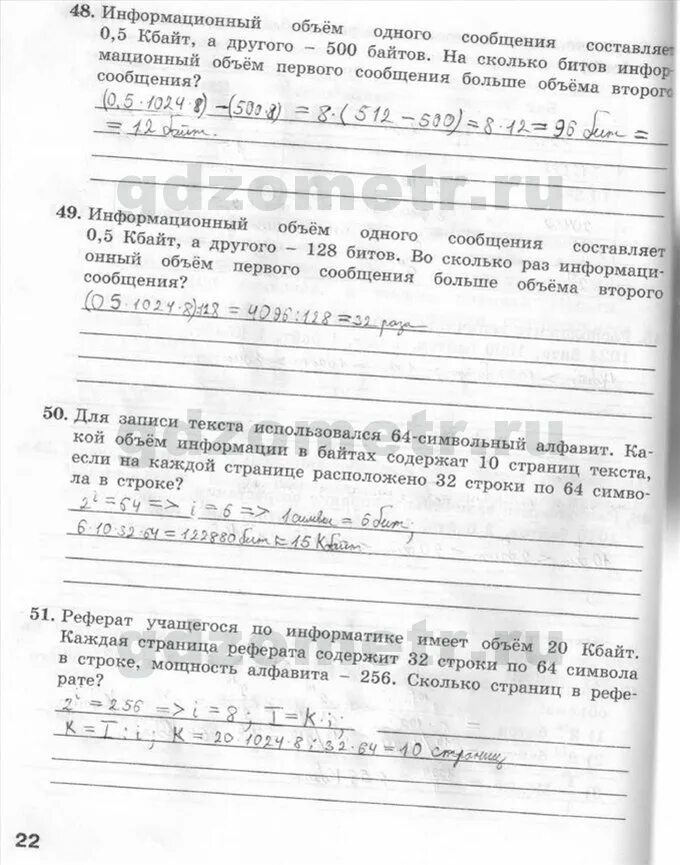 48. Информационный объём одного сообщения составляет
0,5 Кбайт, а другого – 500 байтов. На сколько битов инфор-
мационный объём первого сообщения больше объёма второго
сообщения?
(0,5·1024·8) – (500·8) = 8·(512 – 500) = 8·12 = 96 бит =
= 12 байт.
gdzometr.ru
49. Информационный объём одного сообщения составляет
0,5 Кбайт, а другого – 128 битов. Во сколько раз информаци-
онный объём первого сообщения больше объёма второго
сообщения?
(0 5·1024·8):128 = 4096:128 = 32 раза
50. Для записи текста использовался 64-символьный алфавит. Ка-
кой объём информации в байтах содержат 10 страниц текста,
если на каждой странице расположено 32 строки по 64 симво-
ла в строке?
gdzometr.ru
2^i = 64 => i = 6 => 1 символ = 6 бит;
6·10·32·64 = 122880 бит = 15 Кбайт
51. Реферат учащегося по информатике имеет объём 20 Кбайт.
Каждая страница реферата содержит 32 строки по 64 символа
в строке, мощность алфавита – 256. Сколько страниц в рефе-
рате?
gdzometr.ru
2^i = 256 => i = 8; I = K·i;
K = I : i; K = 20·1024·8 : 32·64 = 10 страниц
22